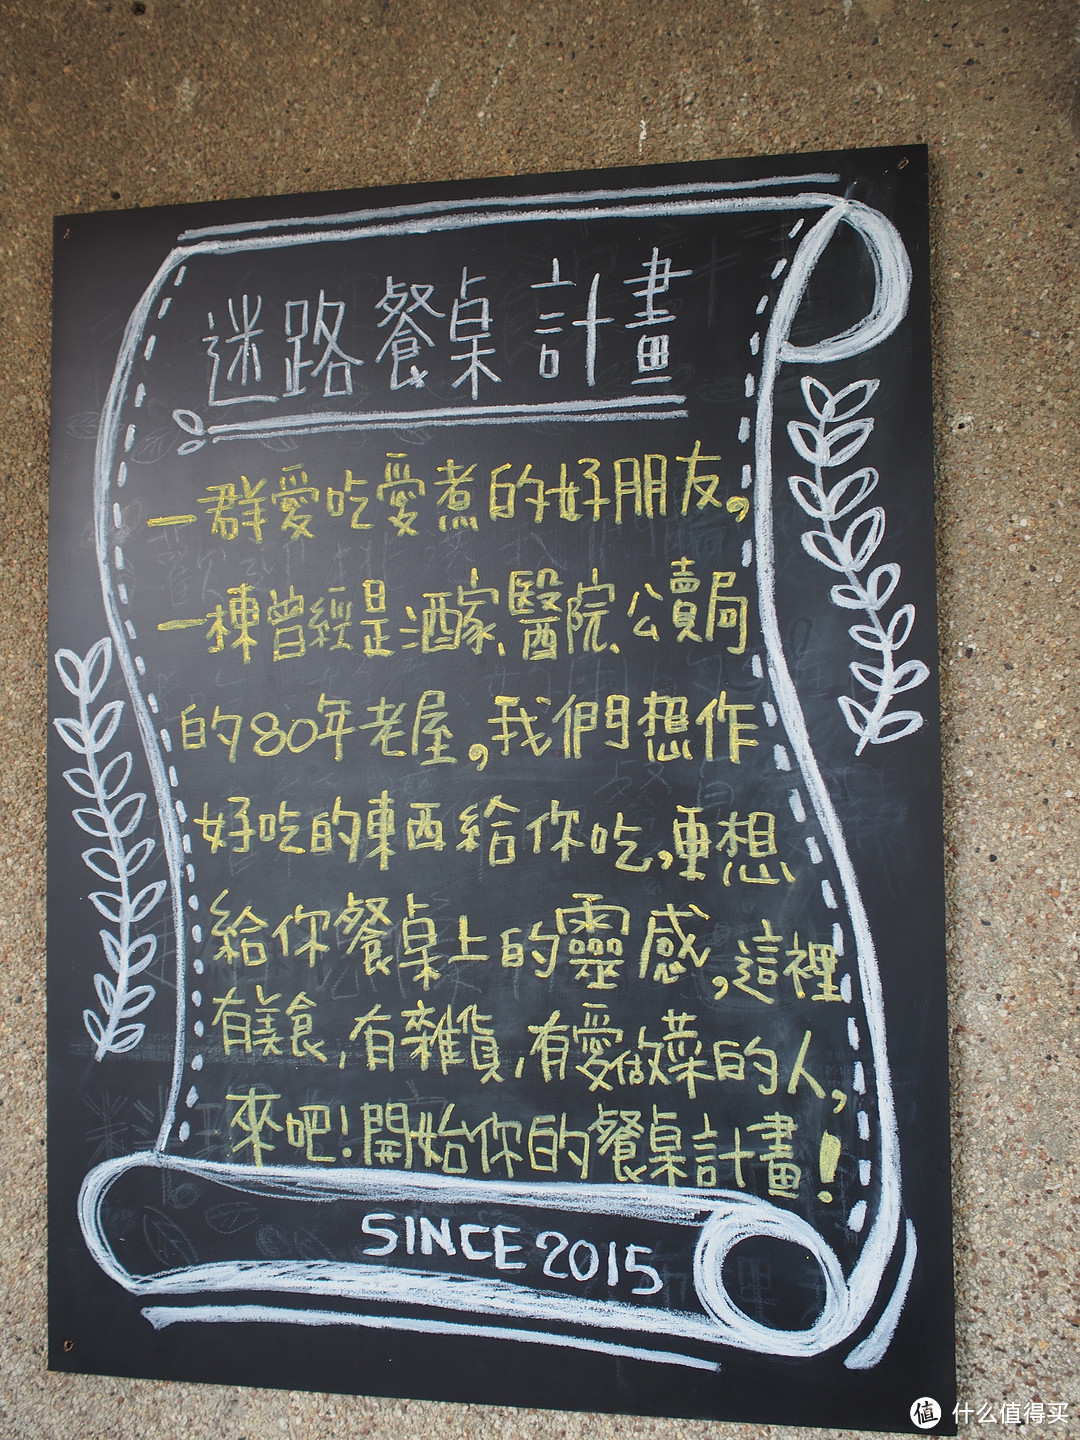 迷路餐桌計畫
一群愛吃愛煮的好朋友，
一棟曾經是酒家、醫院、公賣局
的80年老屋，我們想作
好吃的東西給你吃，重想
給你餐桌上的靈感，這裡
有美食，有雜貨，有愛做菜的人，
來吧！開始你的餐桌計畫！
SINCE 2015
值 什么值得买